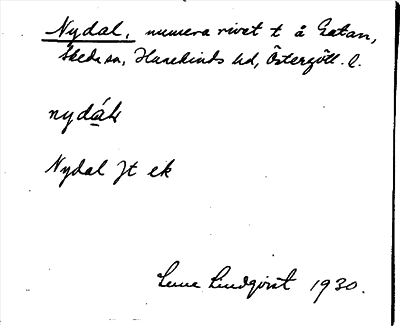 Nydal, numera rivet t å Gatan,
Skeda sn, Hanekinds hd, Östergötl. l.
nydáḷ
Nydal Jt ek
Lindqvist 1930.